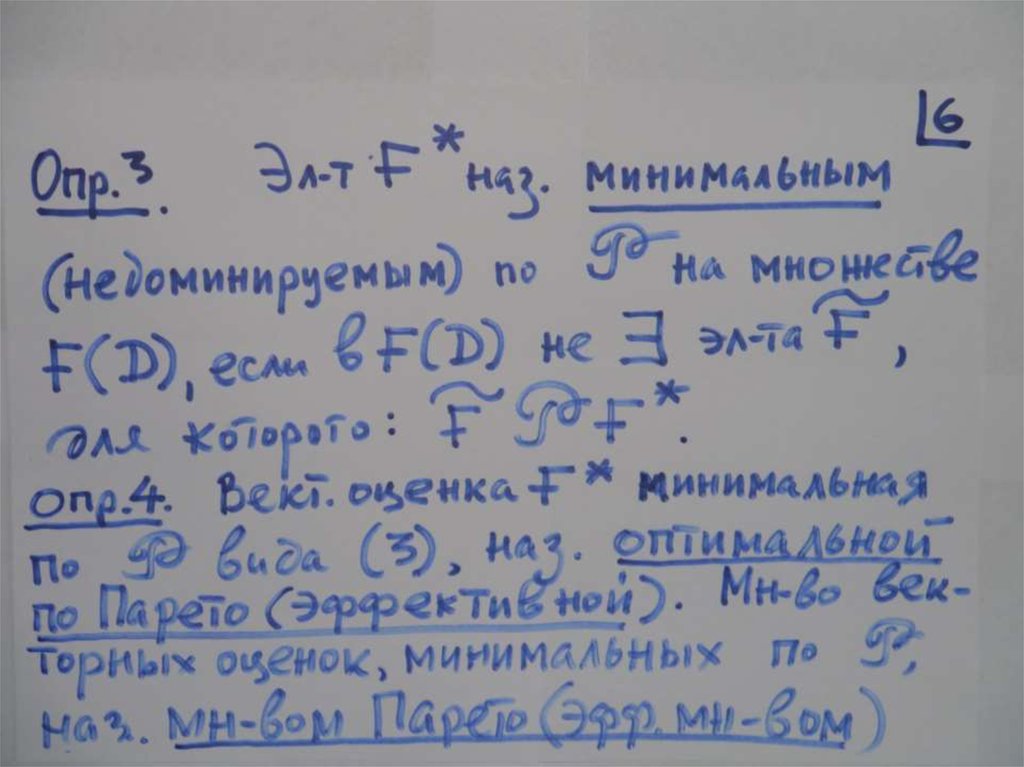 6
Опр.3. Эл-т F* наз. минимальным
(недоминируемым) по 𝒫 на множестве
F(D), если в F(D) не ∃ эл-та F̃,
для которого: F̃ 𝒫 F*.
Опр.4. Вект. оценка F* минимальная
по 𝒫 вида (3), наз. оптимальной
по Парето (эффективной). Мн-во век-
торных оценок, минимальных по 𝒫,
наз. мн-вом Парето (эфф. мн-вом)